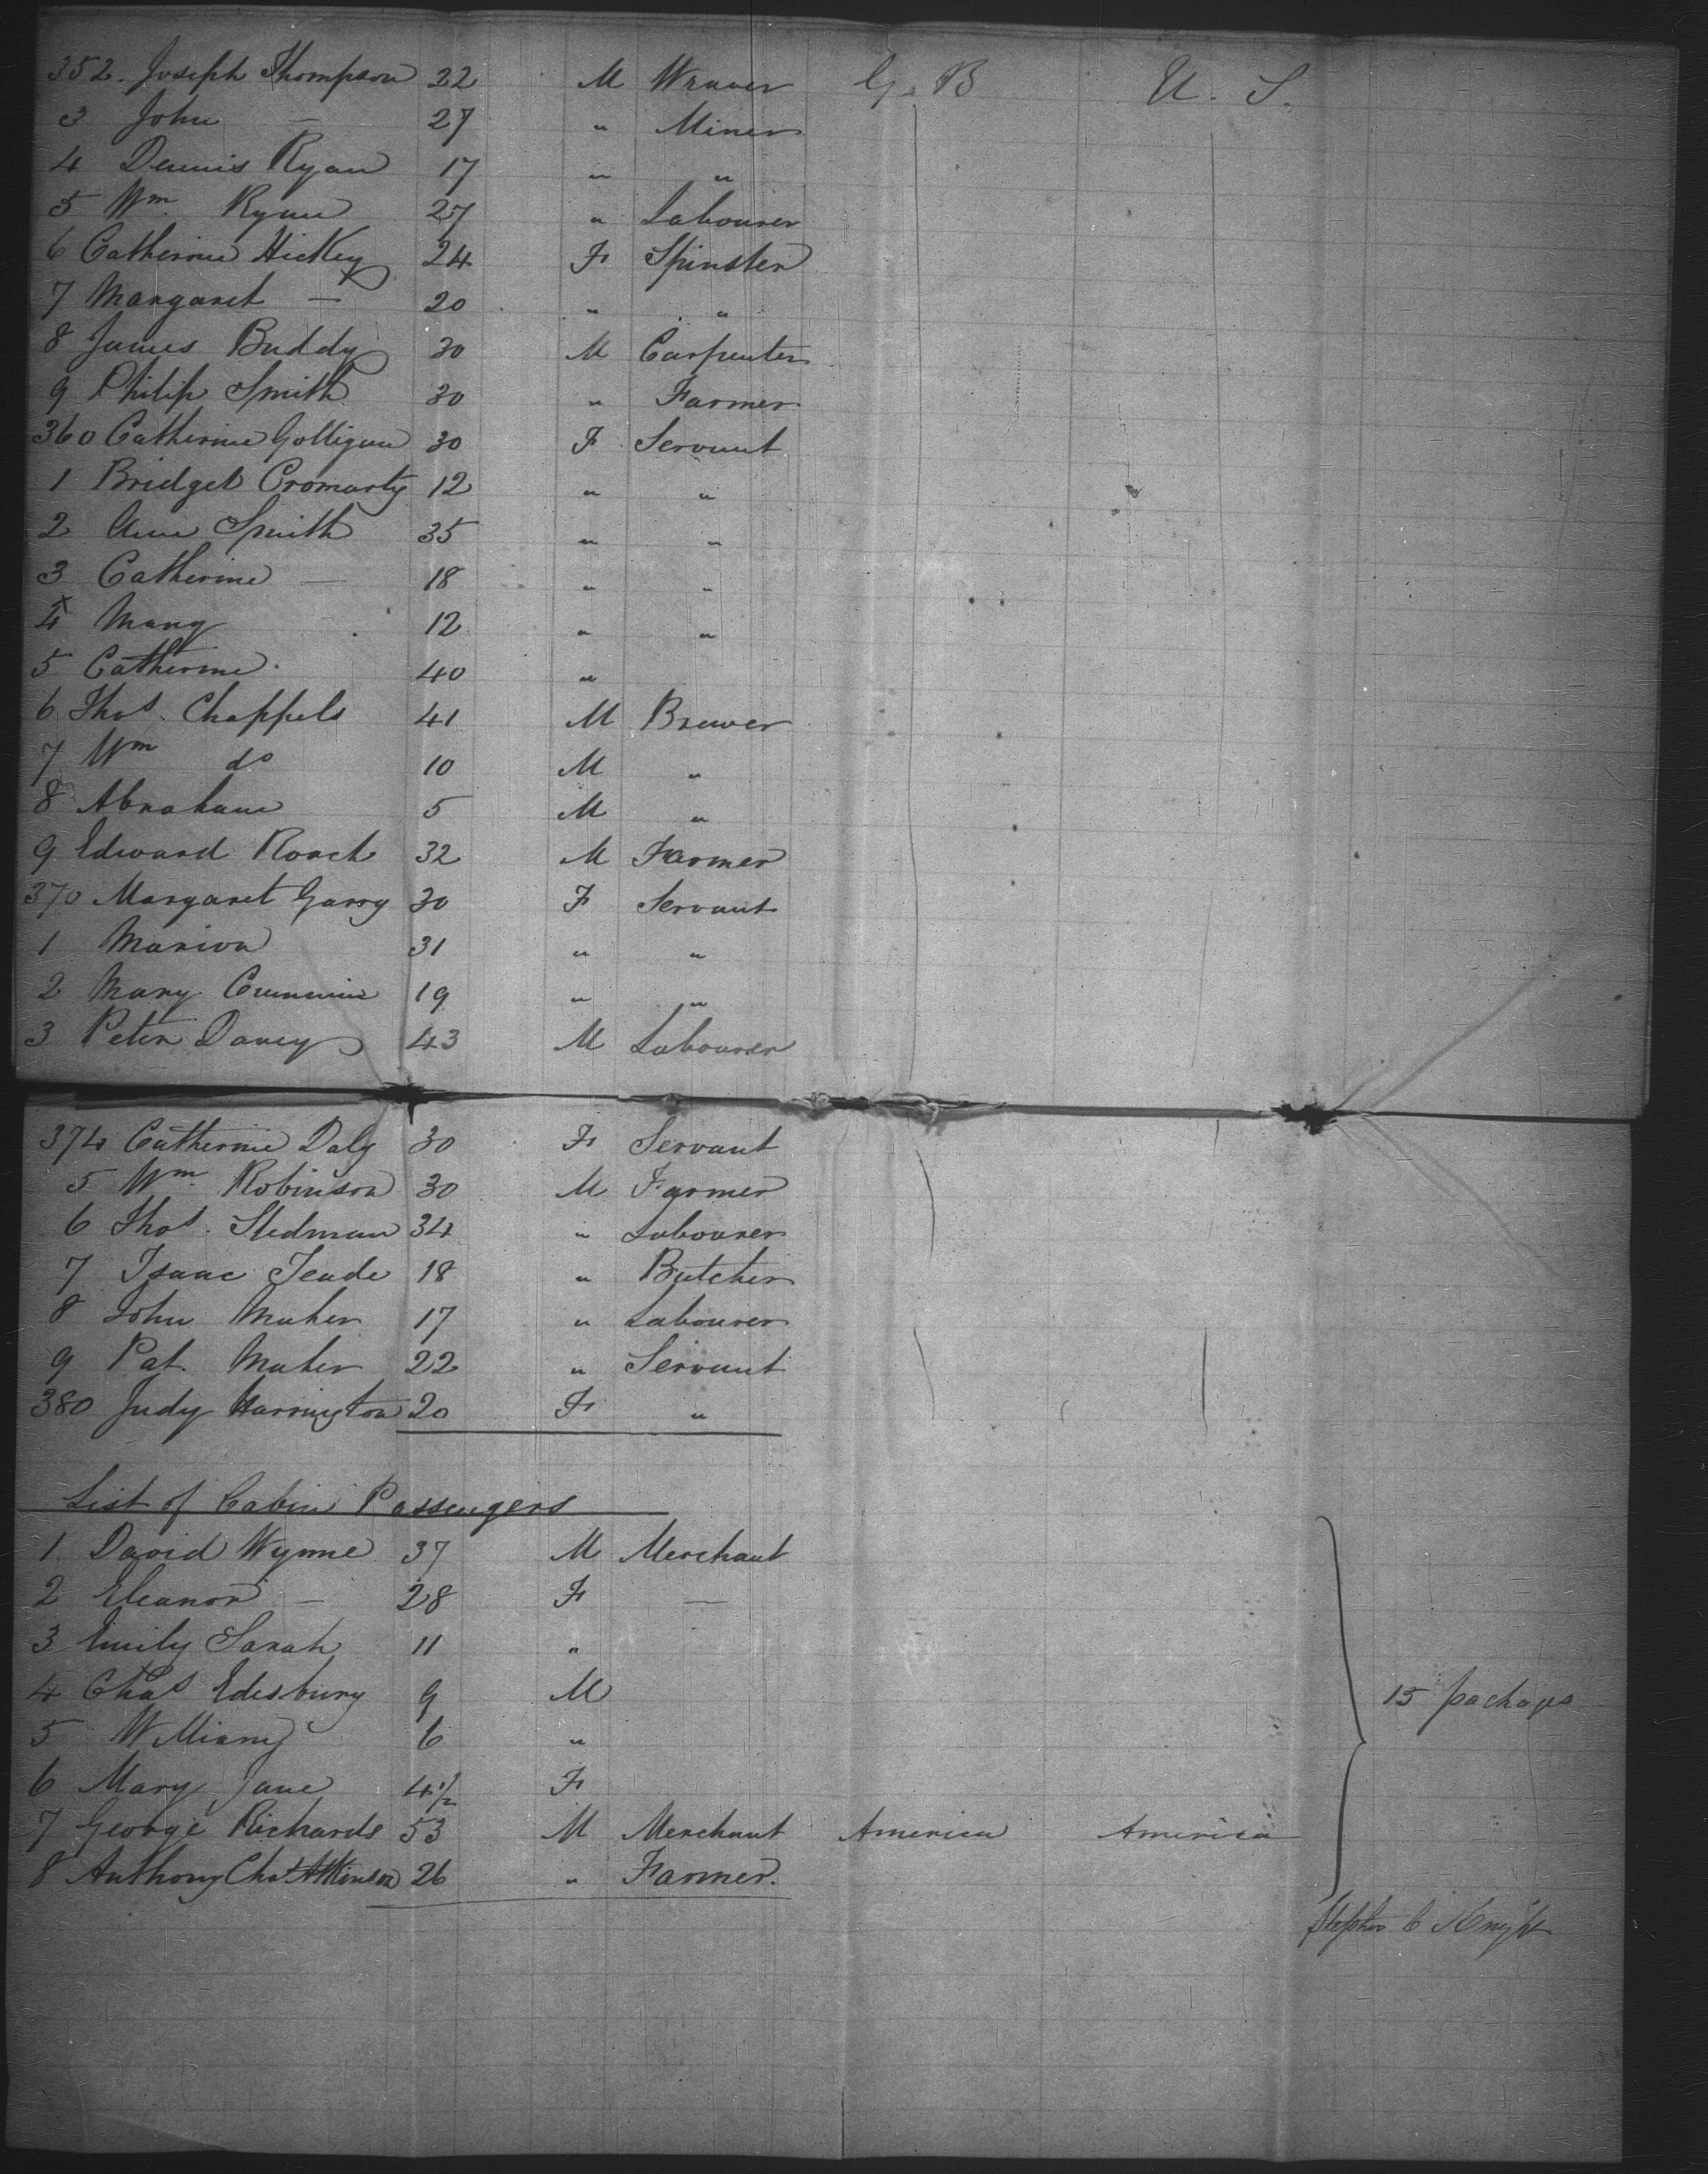 352. Joseph Thompson 22 M Weaver G. B U. S.
3 John — 27 " Miner
4 Dennis Ryan 17 " "
5 Wm Ryan 27 " Labourer
6 Catherine Hickey 24 F Spinster
7 Margaret — 20 " "
8 James Buddy 30 M Carpenter
9 Philip Smith 30 " Farmer
360 Catherine Golligan 30 F Servant
1 Bridget Cromarty 12 " "
2 Ann Smith 35 " "
3 Catherine — 18 " "
4 Mary 12 " "
5 Catherine 40 "
6 Thos. Chappels 41 M Brewer
7 Wm do 10 M "
8 Abraham 5 M "
9 Edward Roach 32 M Farmer
370 Margaret Garry 30 F Servant
1 Marion 31 " "
2 Mary Cummins 19 " "
3 Peter Davey 43 M Labourer
374 Catherine Daly 30 F Servant
5 Wm Robinson 30 M Farmer
6 Thos. Stedman 34 " Labourer
7 Isaac Teade 18 " Butcher
8 John Maher 17 " Labourer
9 Pat. Maher 22 " Servant
380 Judy Harrington 20 F "
List of Cabin Passengers
1 David Wynne 37 M Merchant
2 Eleanor — 28 F —
3 Emily Sarah 11 "
4 Chas Edesbury 9 M
5 6 "
15 packages
6 Mary Jane 4 1/2 F
7 George Richards 53 M Merchant America America
8 Anthony Chas Atkinson 26 " Farmer.
Stephen C Knight